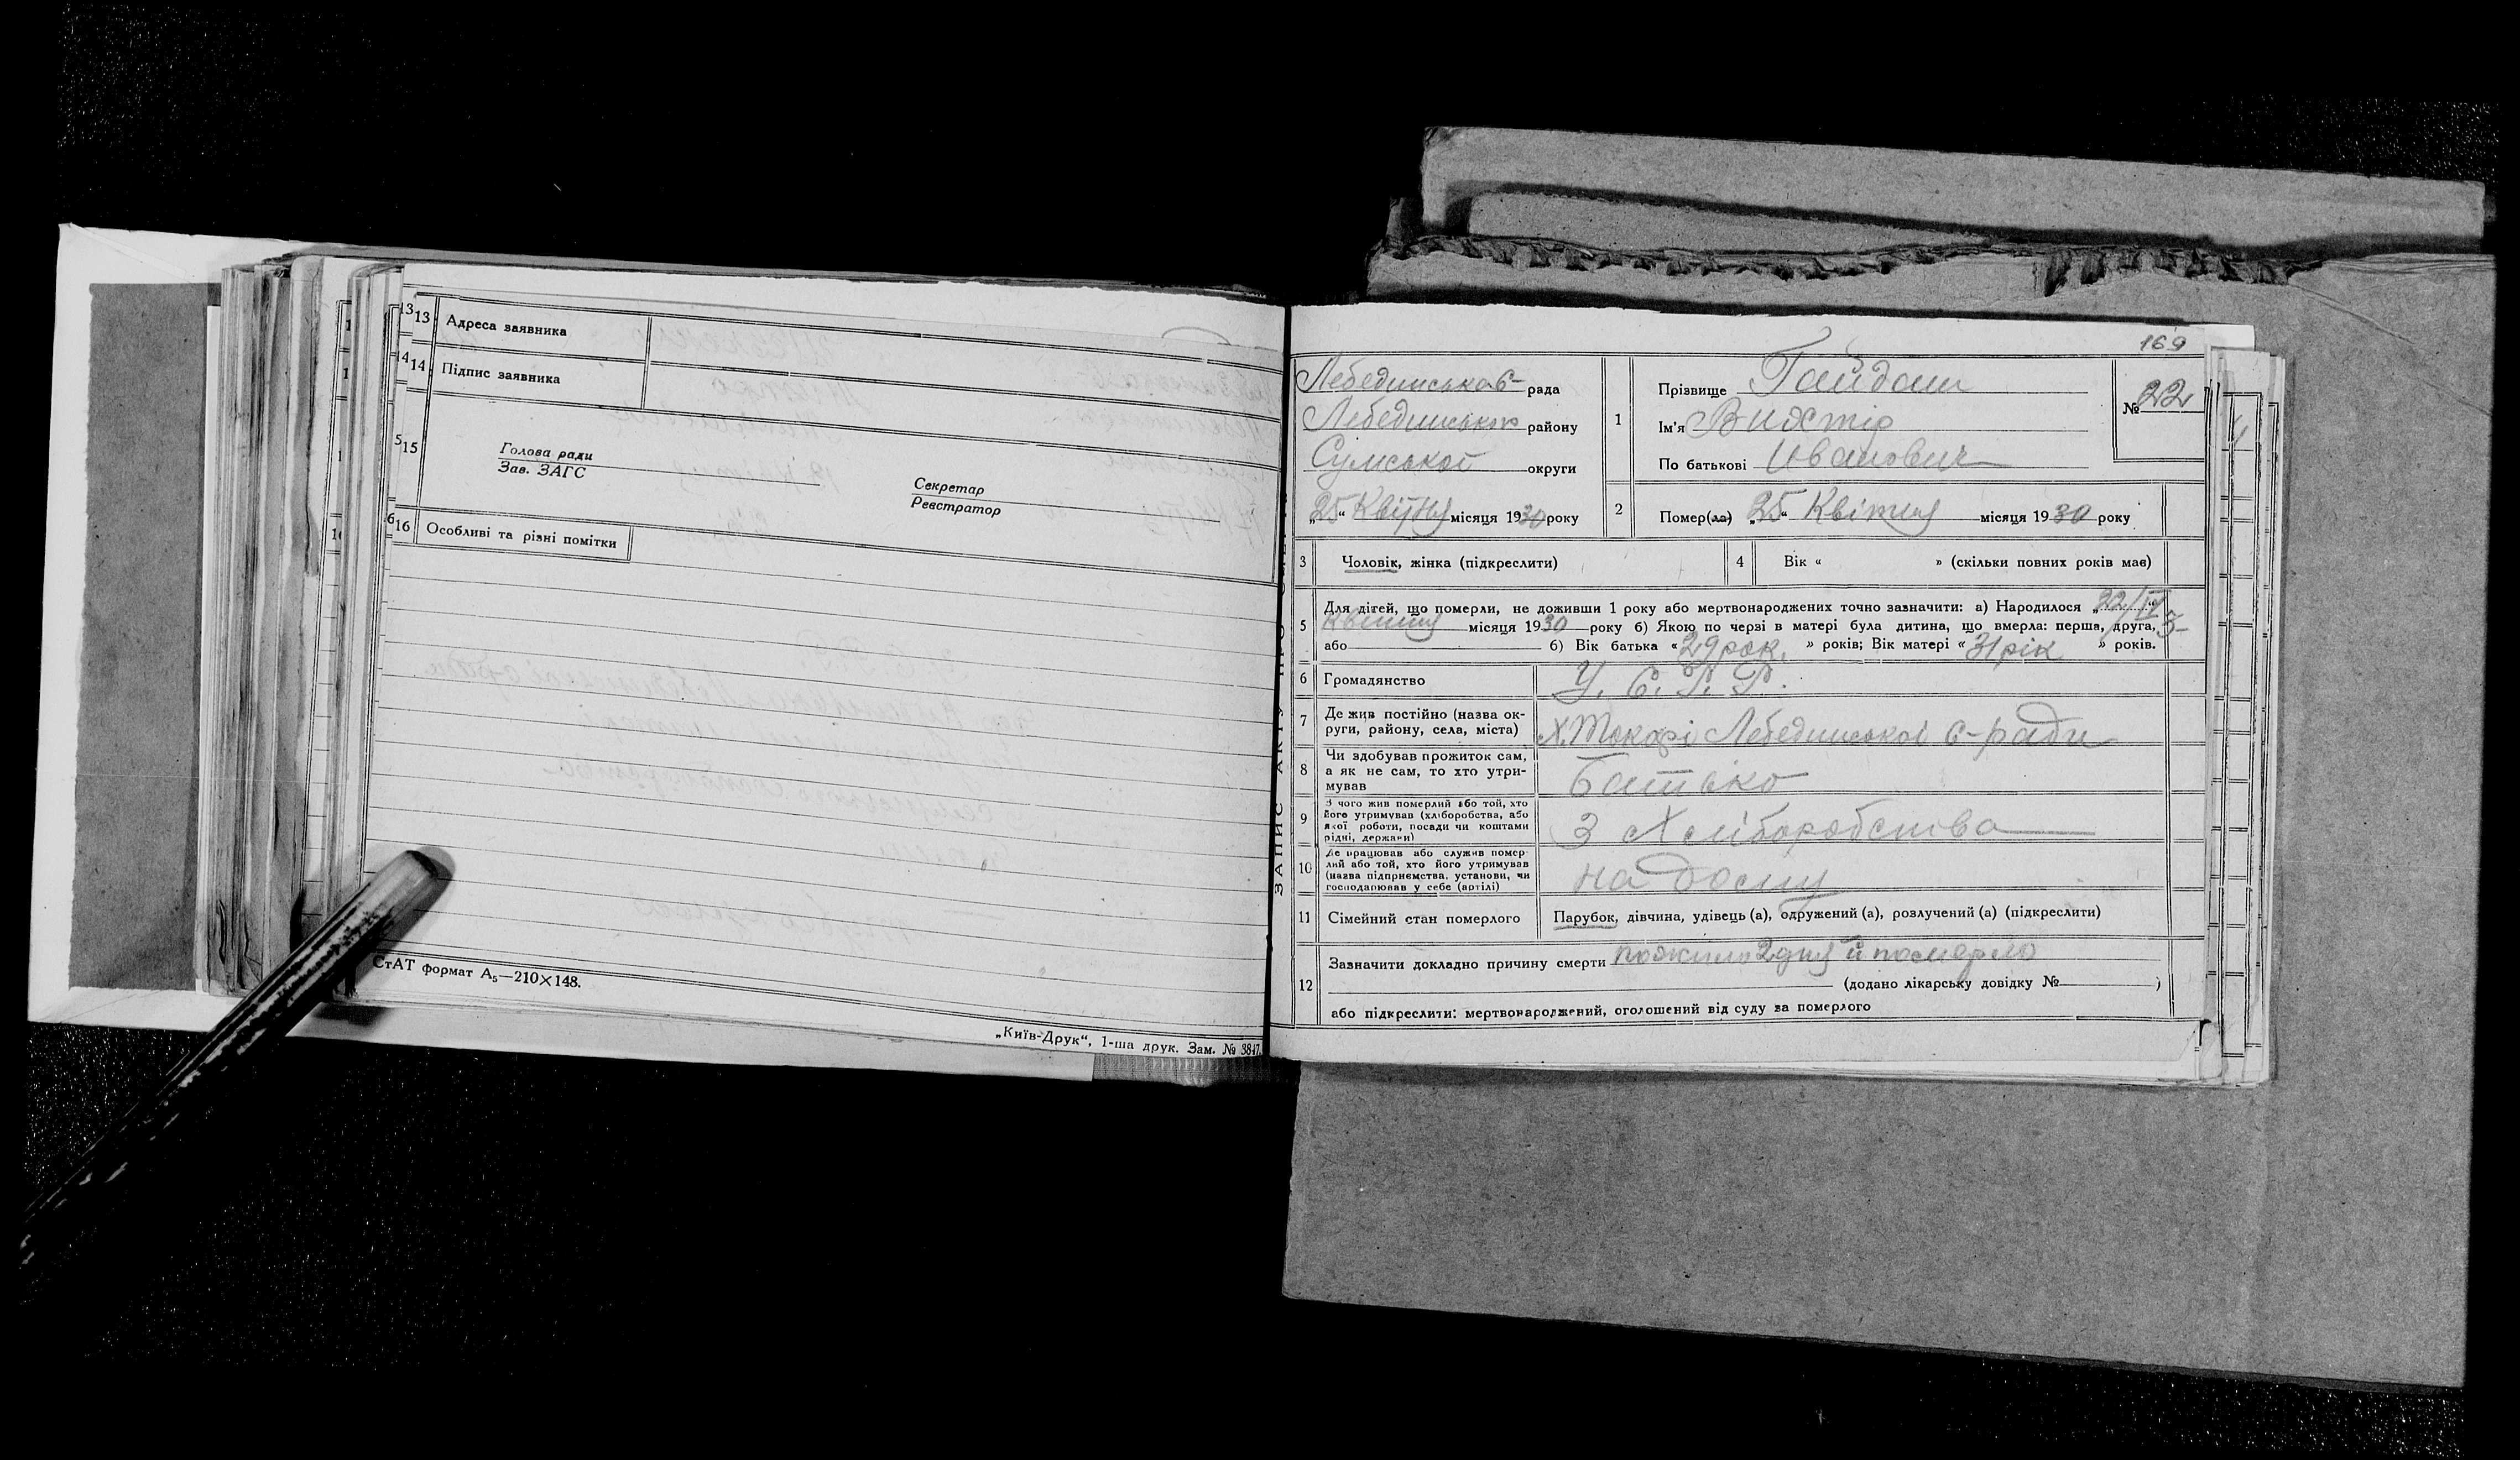 13 13 Адреса заявника
14 14 Підпис заявника
5 15 Голова ради
Зав. ЗАГС
Секретар
Реєстратор
6 16 Особливі та різні помітки
СтАТ формат А₅—210×148.
„Київ-Друк“, 1-ша друк. Зам. № 3847.
ЗАПИС АКТУ ПРО
169
Лебединська с- рада
Лебединського району
Сумської округи
„25“ Квітня місяця 1930 року
1 Прізвище Гайдаш
Ім'я Вікстір
По батькові Иванович
№ 22
2 Помер(ла) „25“ Квітня місяця 1930 року
3 Чоловік, жінка (підкреслити)
4 Вік « » (скільки повних років має)
5 Для дітей, що померли, не доживши 1 року або мертвонароджених точно зазначити: а) Народилося „22/IV“
Квітня місяця 1930 року б) Якою по черзі в матері була дитина, що вмерла: перша, друга, 3-
або б) Вік батька «29 рок.» років; Вік матері «31 рік» років.
6 Громадянство У. С. Р. Р.
7 Де жив постійно (назва ок-
руги, району, села, міста) Х. Токарі Лебединської с-ради
8 Чи здобував прожиток сам,
а як не сам, то хто утри-
мував Батько
9 З чого жив померлий або той, хто
його утримував (хліборобства, або
якої роботи, посади чи коштами
рідні, держави) З Хліборобства
10 Де працював або служив помер-
лий або той, хто його утримував
(назва підприємства, установи, чи
господарював у себе (артілі) на дому
11 Сімейний стан померлого Парубок, дівчина, удівець (а), одружений (а), розлучений (а) (підкреслити)
12 Зазначити докладно причину смерти пожило 2 дня й померло
(додано лікарську довідку № )
або підкреслити: мертвонароджений, оголошений від суду за померлого